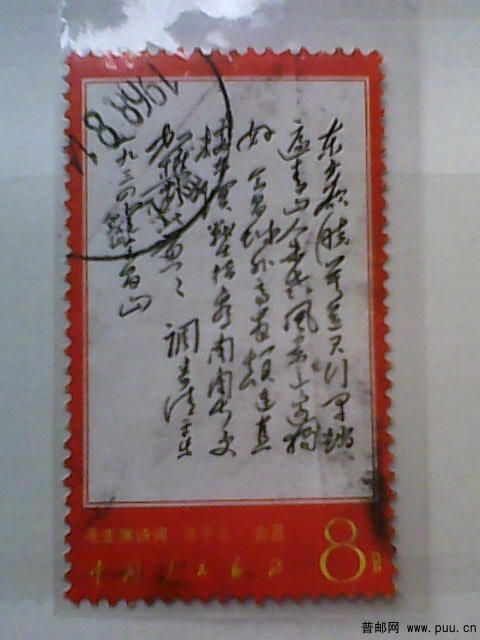 东方欲晓莫道君行早踏
遍青山人未老风景这边独
好会昌城外高峰颠连直
接东溟战士指看南粤更
加郁郁葱葱 调寄清平乐
一九三四年 山
1968.8
毛主席诗词 清平乐·会昌
中国人民邮政
8分
普邮网 www.puu.cn